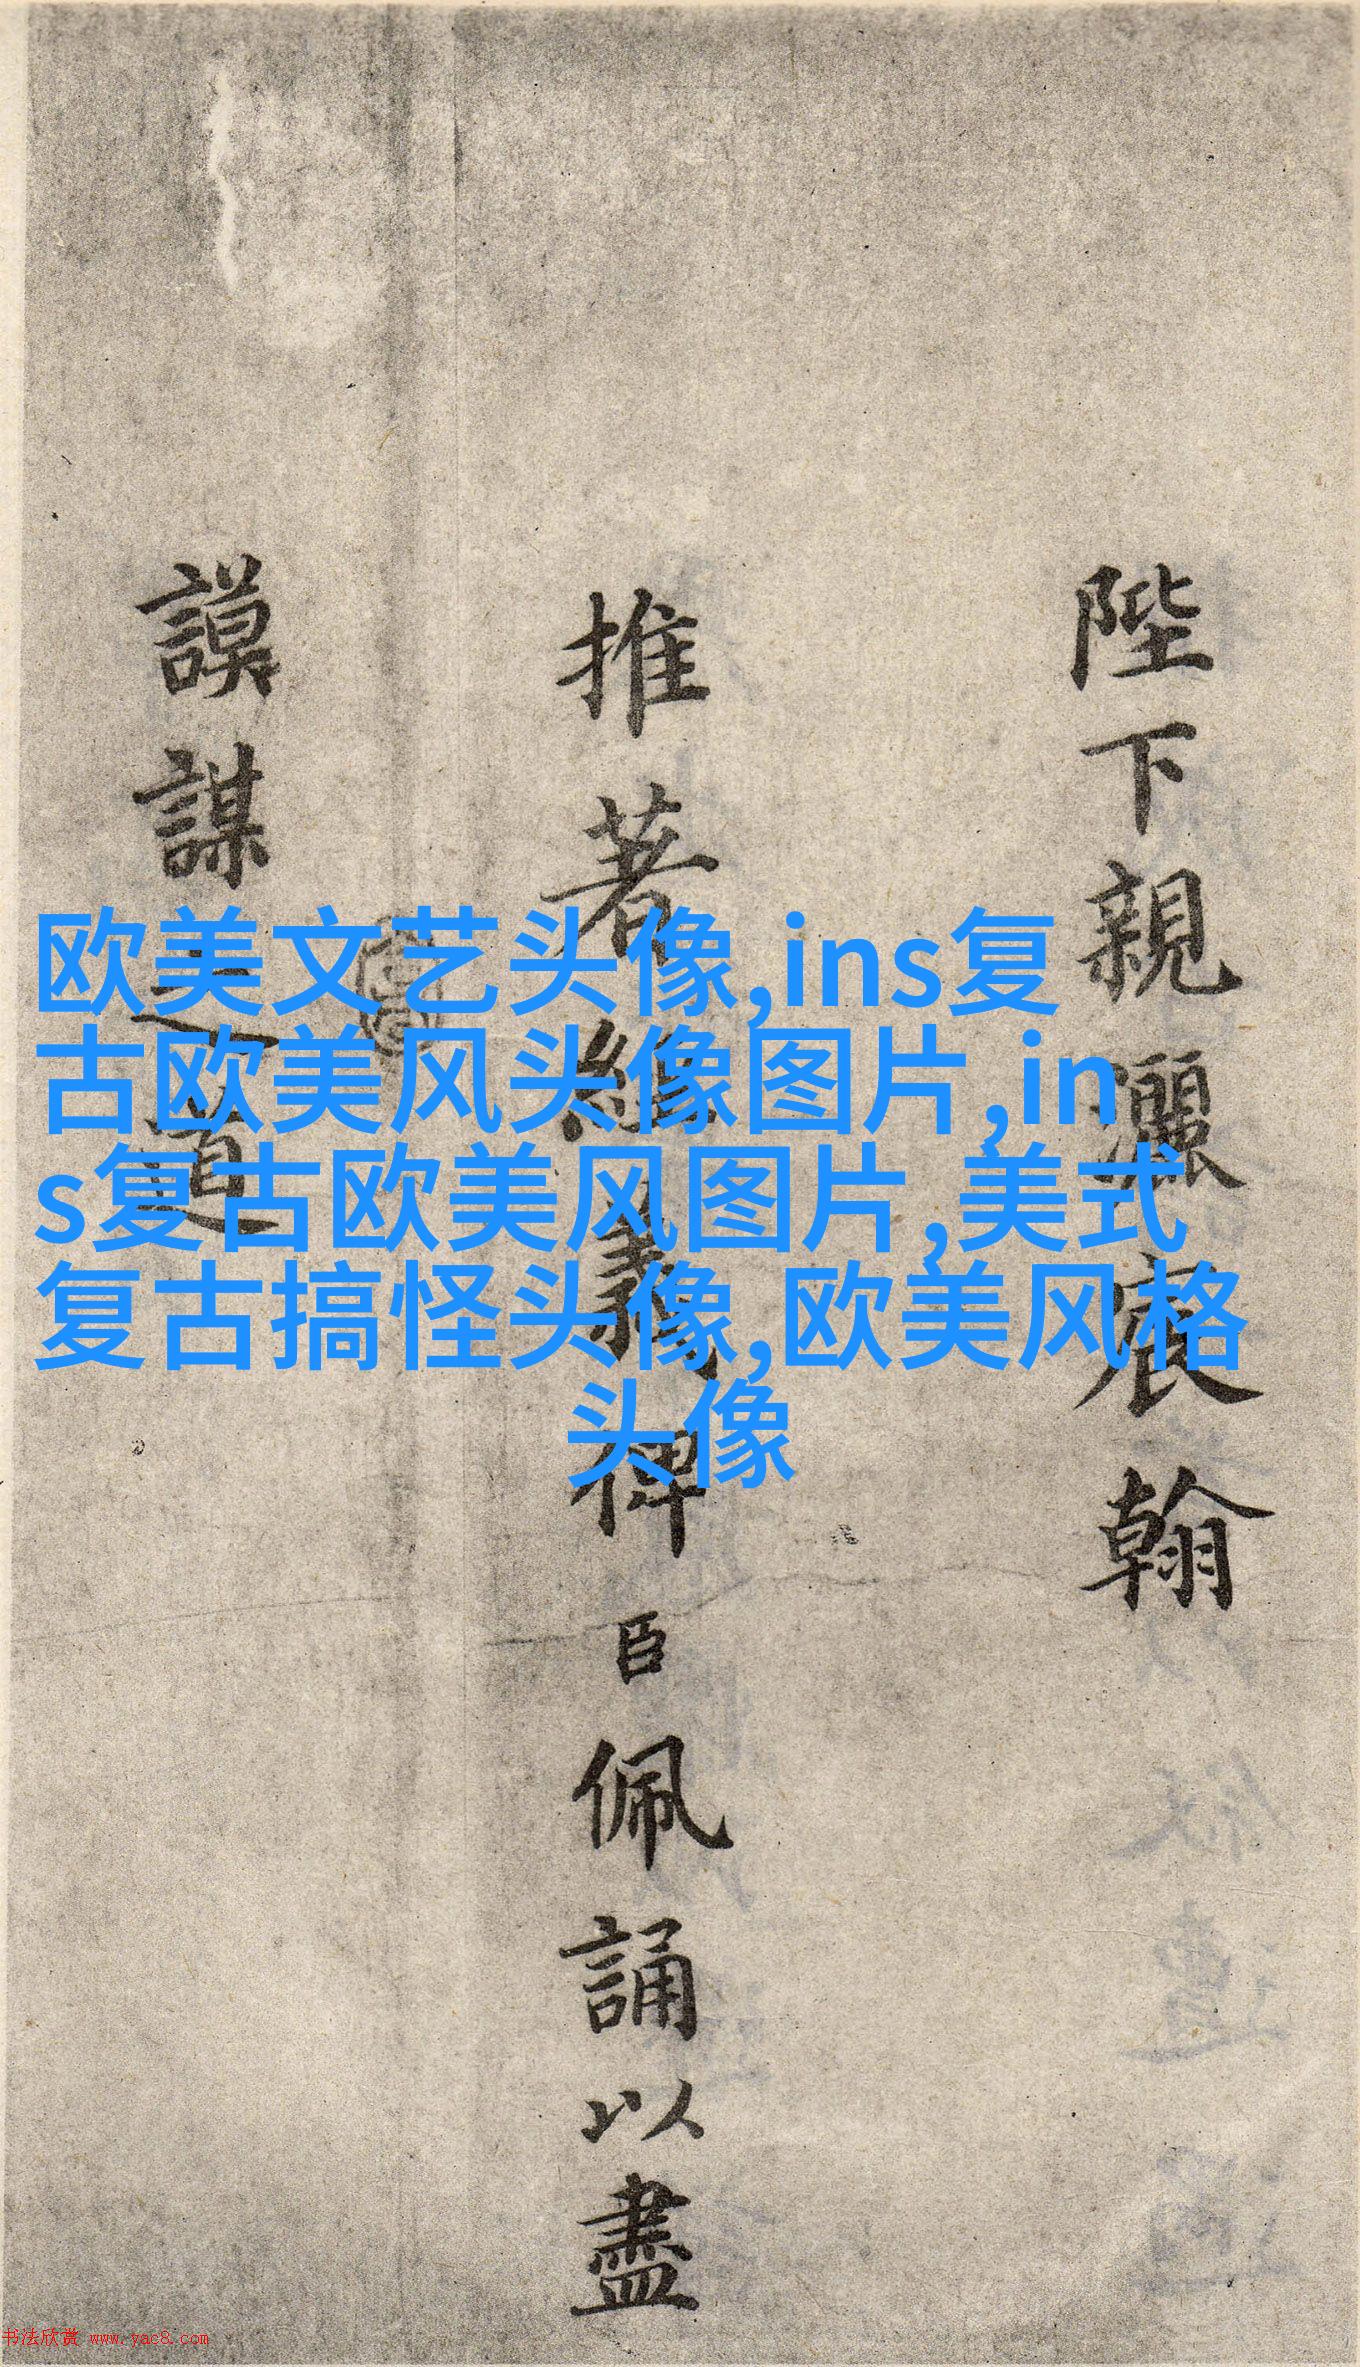 陛下親灑宸翰
推著經義俾臣佩誦以盡
謨謀之道
欧美文艺头像,ins复
古欧美风头像图片,in
s复古欧美风图片,美式
复古搞怪头像,欧美风格
头像
书法欣赏 www.yac8.com